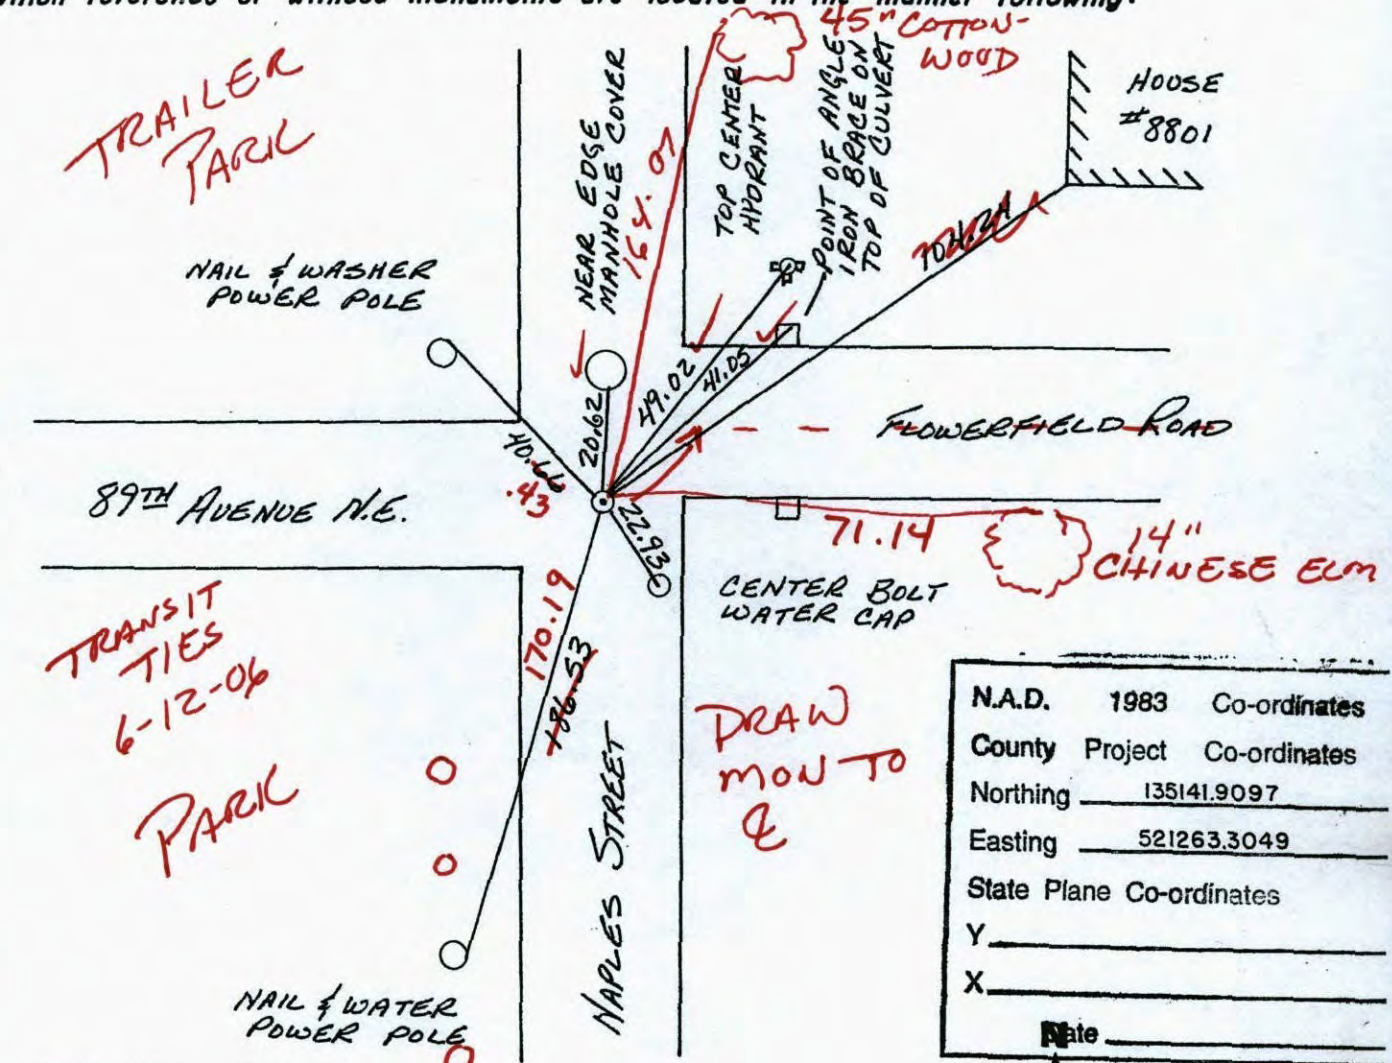 which reference or witness monuments are located in the manner following:
45" COTTON-
WOOD
TRAILER
PARK
NEAR EDGE
MANHOLE COVER
164.07
TOP CENTER
HYDRANT
POINT OF ANGLE
IRON BRACE ON
TOP OF CULVERT
HOUSE
#8801
104.24
NAIL & WASHER
POWER POLE
49.02
41.05
20.62
40.66
.43
FLOWERFIELD ROAD
89TH AVENUE N.E.
22.93
71.14
14"
CHINESE ELM
CENTER BOLT
WATER CAP
TRANSIT
TIES
6-12-06
170.19
186.53
PARK
DRAW
MON TO
℄
NAPLES STREET
NAIL & WATER
POWER POLE
N.A.D. 1983 Co-ordinates
County Project Co-ordinates
Northing 135141.9097
Easting 521263.3049
State Plane Co-ordinates
Y
X
N
Date